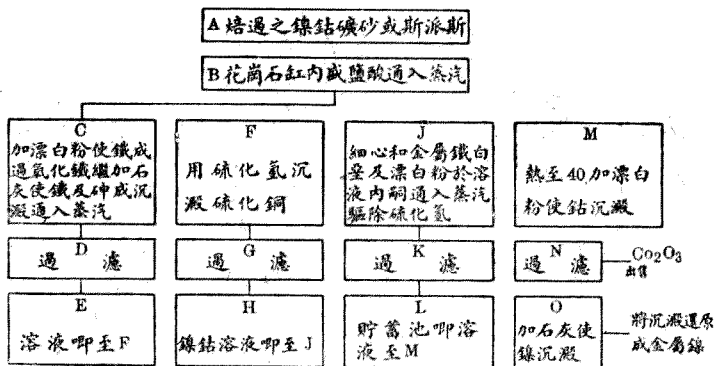 A 焙過之鎳鈷礦砂或斯派斯
B 花崗石缸內盛鹽酸通入蒸汽
C
加漂白粉使鐵成
過氧化鐵繼加石
灰使鐵及砷成沉
澱通入蒸汽
D
過濾
E
溶液唧至F
F
用硫化氫沉
澱硫化銅
G
過濾
H
鎳鈷溶液唧至J
J
細心和金屬鐵白
堊及漂白粉於溶
液內嗣通入蒸汽
驅除硫化氫
K
過濾
L
貯蓄池唧溶
液至M
M
熱至40加漂白
粉使鈷沉澱
N
過濾
Co₂O₃
出售
O
加石灰使
鎳沉澱
將沉澱還原
成金屬鎳